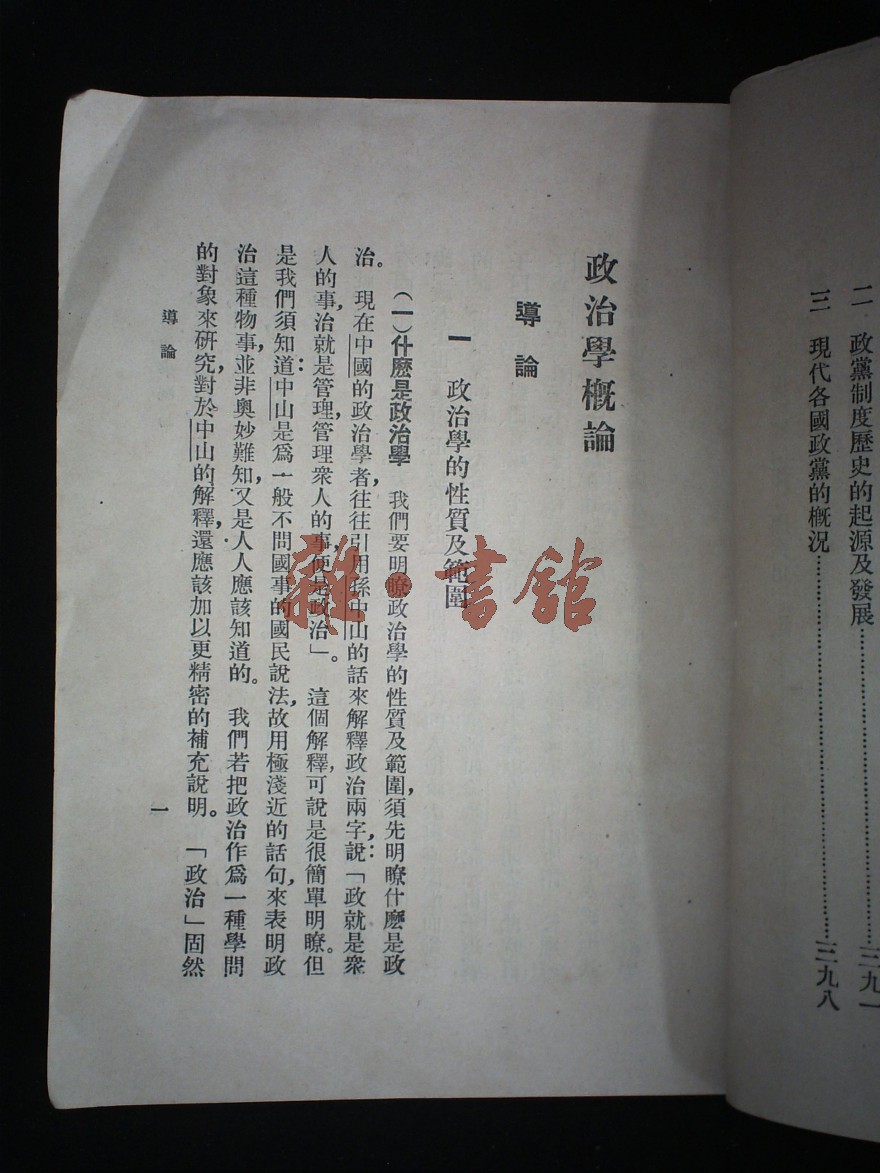 二　政黨制度歷史的起源及發展……三九一
三　現代各國政黨的概況……三九八
政治學概論
導論
一　政治學的性質及範圍
（一）什麽是政治學　我們要明瞭政治學的性質及範圍，須先明瞭什麽是政
治。　現在中國的政治學者，往往引用孫中山的話來解釋政治兩字，說：「政就是衆
人的事，治就是管理，管理衆人的事，便是政治」。　這個解釋，可說是很簡單明瞭。但
是我們須知道：中山是爲一般不問國事的國民說法，故用極淺近的話句，來表明政
治這種物事，並非奧妙難知，又是人人應該知道的。　我們若把政治作爲一種學問
的對象來研究，對於中山的解釋，還應該加以更精密的補充說明。　「政治」固然
導論
一
雜·書館